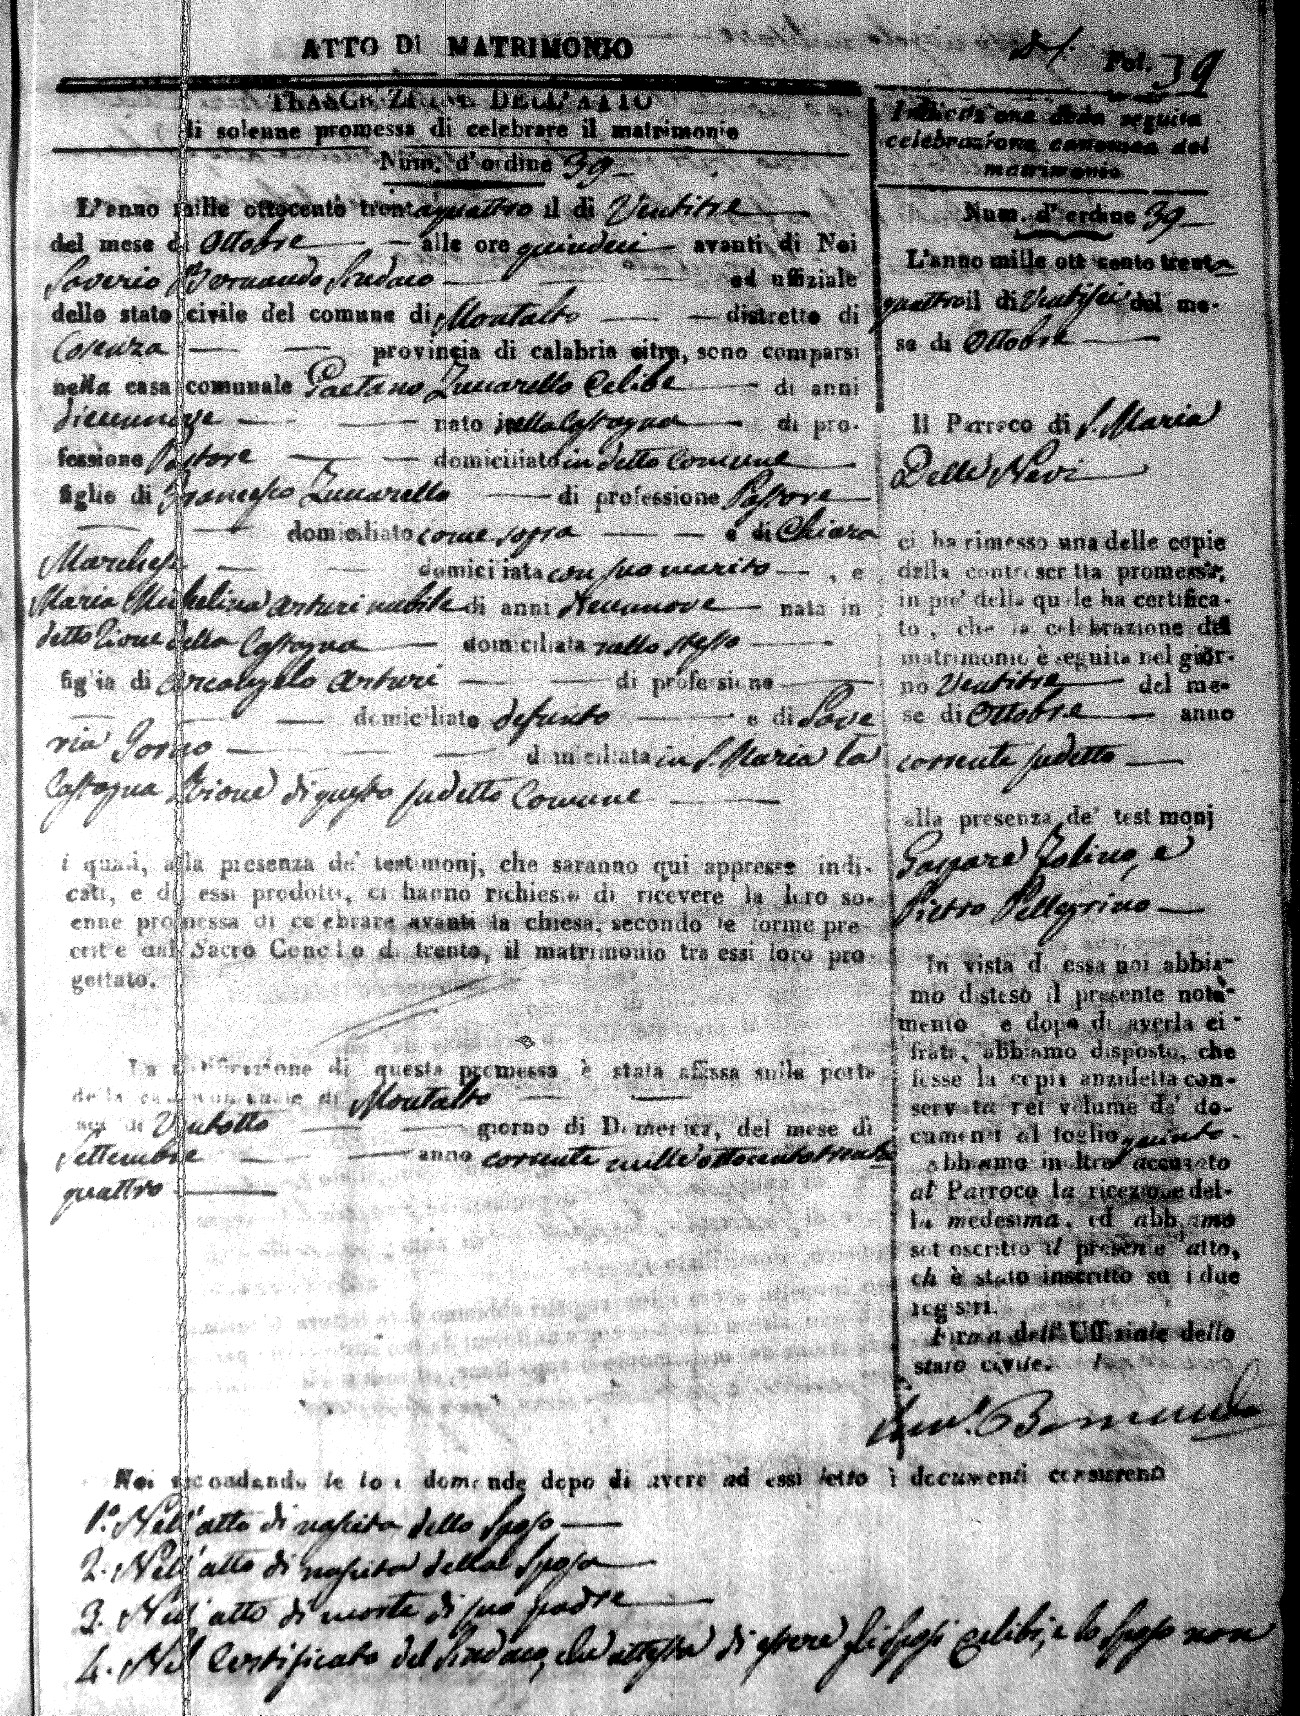 ATTO DI MATRIMONIO
Fol. 39
TRASCRIZIONE DELL'ATTO
di solenne promessa di celebrare il matrimonio
Num. d'ordine 39
L'anno mille ottocento trentaquattro il di Ventitre
del mese di Ottobre alle ore quindici avanti di Noi
Saverio Bernaudo Sindaco ed uffiziale
dello stato civile del comune di Montalto distretto di
Cosenza provincia di calabria citra, sono comparsi
nella casa comunale Gaetano Zuccarello Celibe di anni
diecinnove nato nella Castagna di pro-
fessione Pastore domiciliato in detto Comune
figlio di Francesco Zuccarello di professione Pastore
domiciliato come sopra e di Chiara
Marchese domiciliata con suo marito , e
Maria Michelina Arturi nubile di anni diecinnove nata in
detto Rione della Castagna domiciliata nello stesso
figlia di Arcangelo Arturi di professione
domiciliato defunto e di Save
ria domiciliata in S. Maria la
Castagna Rione di questo sudetto Comune
i quali, alla presenza de' testimonj, che saranno qui appresso indi-
cati, e da essi prodotti, ci hanno richiesto di ricevere la loro so-
enne promessa di celebrare avanti la chiesa, secondo le forme pre-
critte dal Sacro Concilio di trento, il matrimonio tra essi loro pro
gettato.
La notificazione di questa promessa è stata affissa sulla porta
della casa comunale di Montalto
nel di Ventotto giorno di Domenica, del mese di
Settembre anno corrente mille ottocentotrenta
quattro
Indicazione della seguita
celebrazione canonica del
matrimonio
Num. d'ordine 39
L'anno mille ottocento trenta
quattro il di Ventisei del me-
se di Ottobre
Il Parroco di S. Maria
Delle Nevi
ci ha rimesso una delle copie
della controscritta promessa,
in piè della quale ha certifica-
to, che la celebrazione del
matrimonio è seguita nel gior-
no Ventitre del me-
se di Ottobre anno
corrente sudetto
alla presenza de' testimonj
Gaspare Folino, e
Pietro Pellegrino
In vista di essa noi abbia-
mo disteso il presente nota-
mento, e dopo di averla ci-
frata, abbiamo disposto, che
fosse la copia anzidetta con-
servata nel volume de' do-
cumenti al foglio quinto.
Abbiamo inoltre accusato
al Parroco la ricezione del-
la medesima, ed abbiamo
sottoscritto il presente atto,
ch è stato inscritto su i due
registri.
Firma dell'Uffiziale dello
stato civile.
Noi secondando le loro domande dopo di avere ad essi letto i documenti consistenti
1.° Nell'atto di nascita dello Sposo
2. Nell'atto di nascita della Sposa
3. Nell'atto di morte di suo padre
4. Nel Certificato del Sindaco, che attesta di essere gli sposi celibi, e lo Sposo non